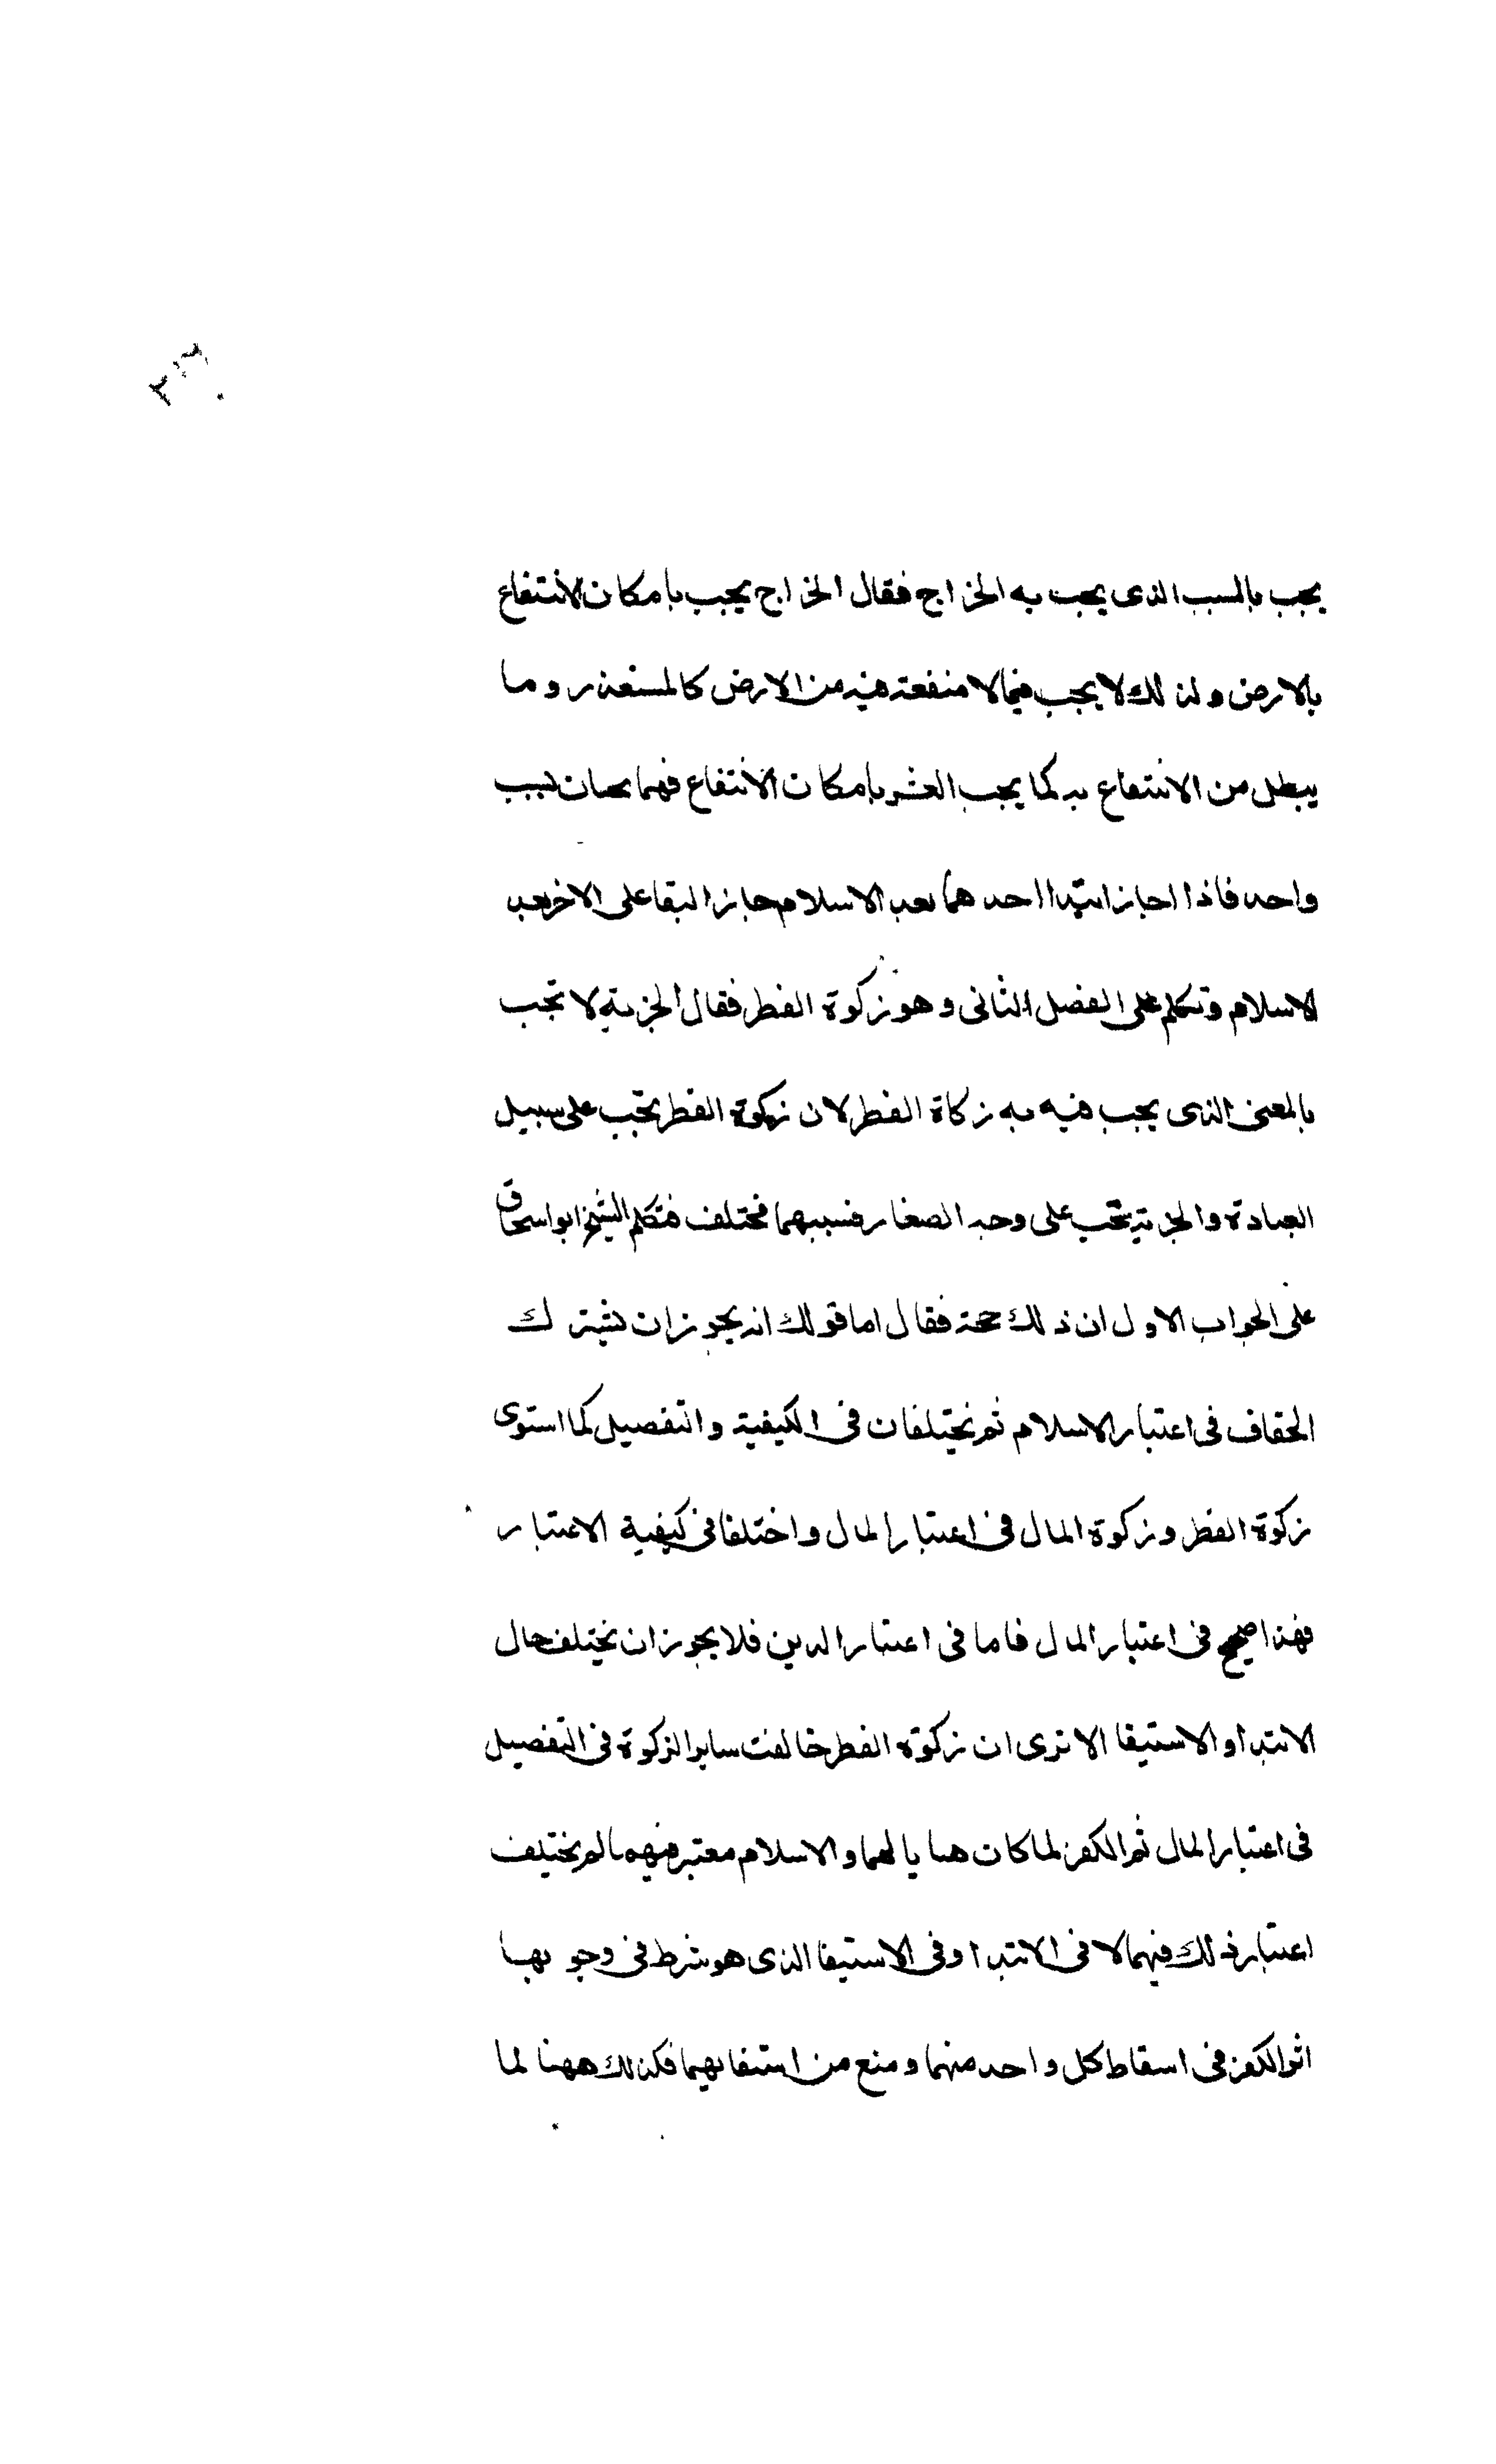 يجب بالسبب الذى يجب به الخراج فقال الخراج يجب بامكان الانتفاع
بالارض ولذلك لا يجب فيما لا منفعة فيه من الارض كالمستعذر وما
يبطل من الانتفاع به كما يجب العشر بامكان الانتفاع فهما يجبان بسبب
واحد فاذا اجاز ابتدا احدهما بعد الاسلام جاز البقا على الاخر بعد
الاسلام وتكلم على الفصل الثانى وهو زكوة الفطر فقال الجزية لا تجب
بالمعنى الذى يجب فيه به زكاة الفطر لان زكوة الفطر تجب على سبيل
العبادة والجزية تجب على وجه الصغار فسببهما مختلف فتكلم الشيخ ابو اسحاق
على الجواب الاول ان ذلك حجة فقال اما قولك انه يجوز ان يشترك
الحقاف فى اعتبار الاسلام ثم يختلفان فى الكيفية والتفصيل كما استوى
زكوة الفطر وزكوة المال فى اعتبار المال واختلفا فى كيفية الاعتبار
فهذا صحيح فى اعتبار المال فاما فى اعتبار الدين فلا يجوز ان يختلف حال
الابتدا والاستيفا الا ترى ان زكوة الفطر خالفت ساير الزكوة فى التفصيل
فى اعتبار المال ثم الكفر لما كان منافيا لهما والاسلام معتبر فيهما لم يختلف
اعتبار ذلك فيهما لا فى الابتدا وفى الاستيفا الذى هو شرط فى وجوبها
اثر الكفر فى اسقاط كل واحد منهما ومنع من استيفايهما فكذلك ههنا لما